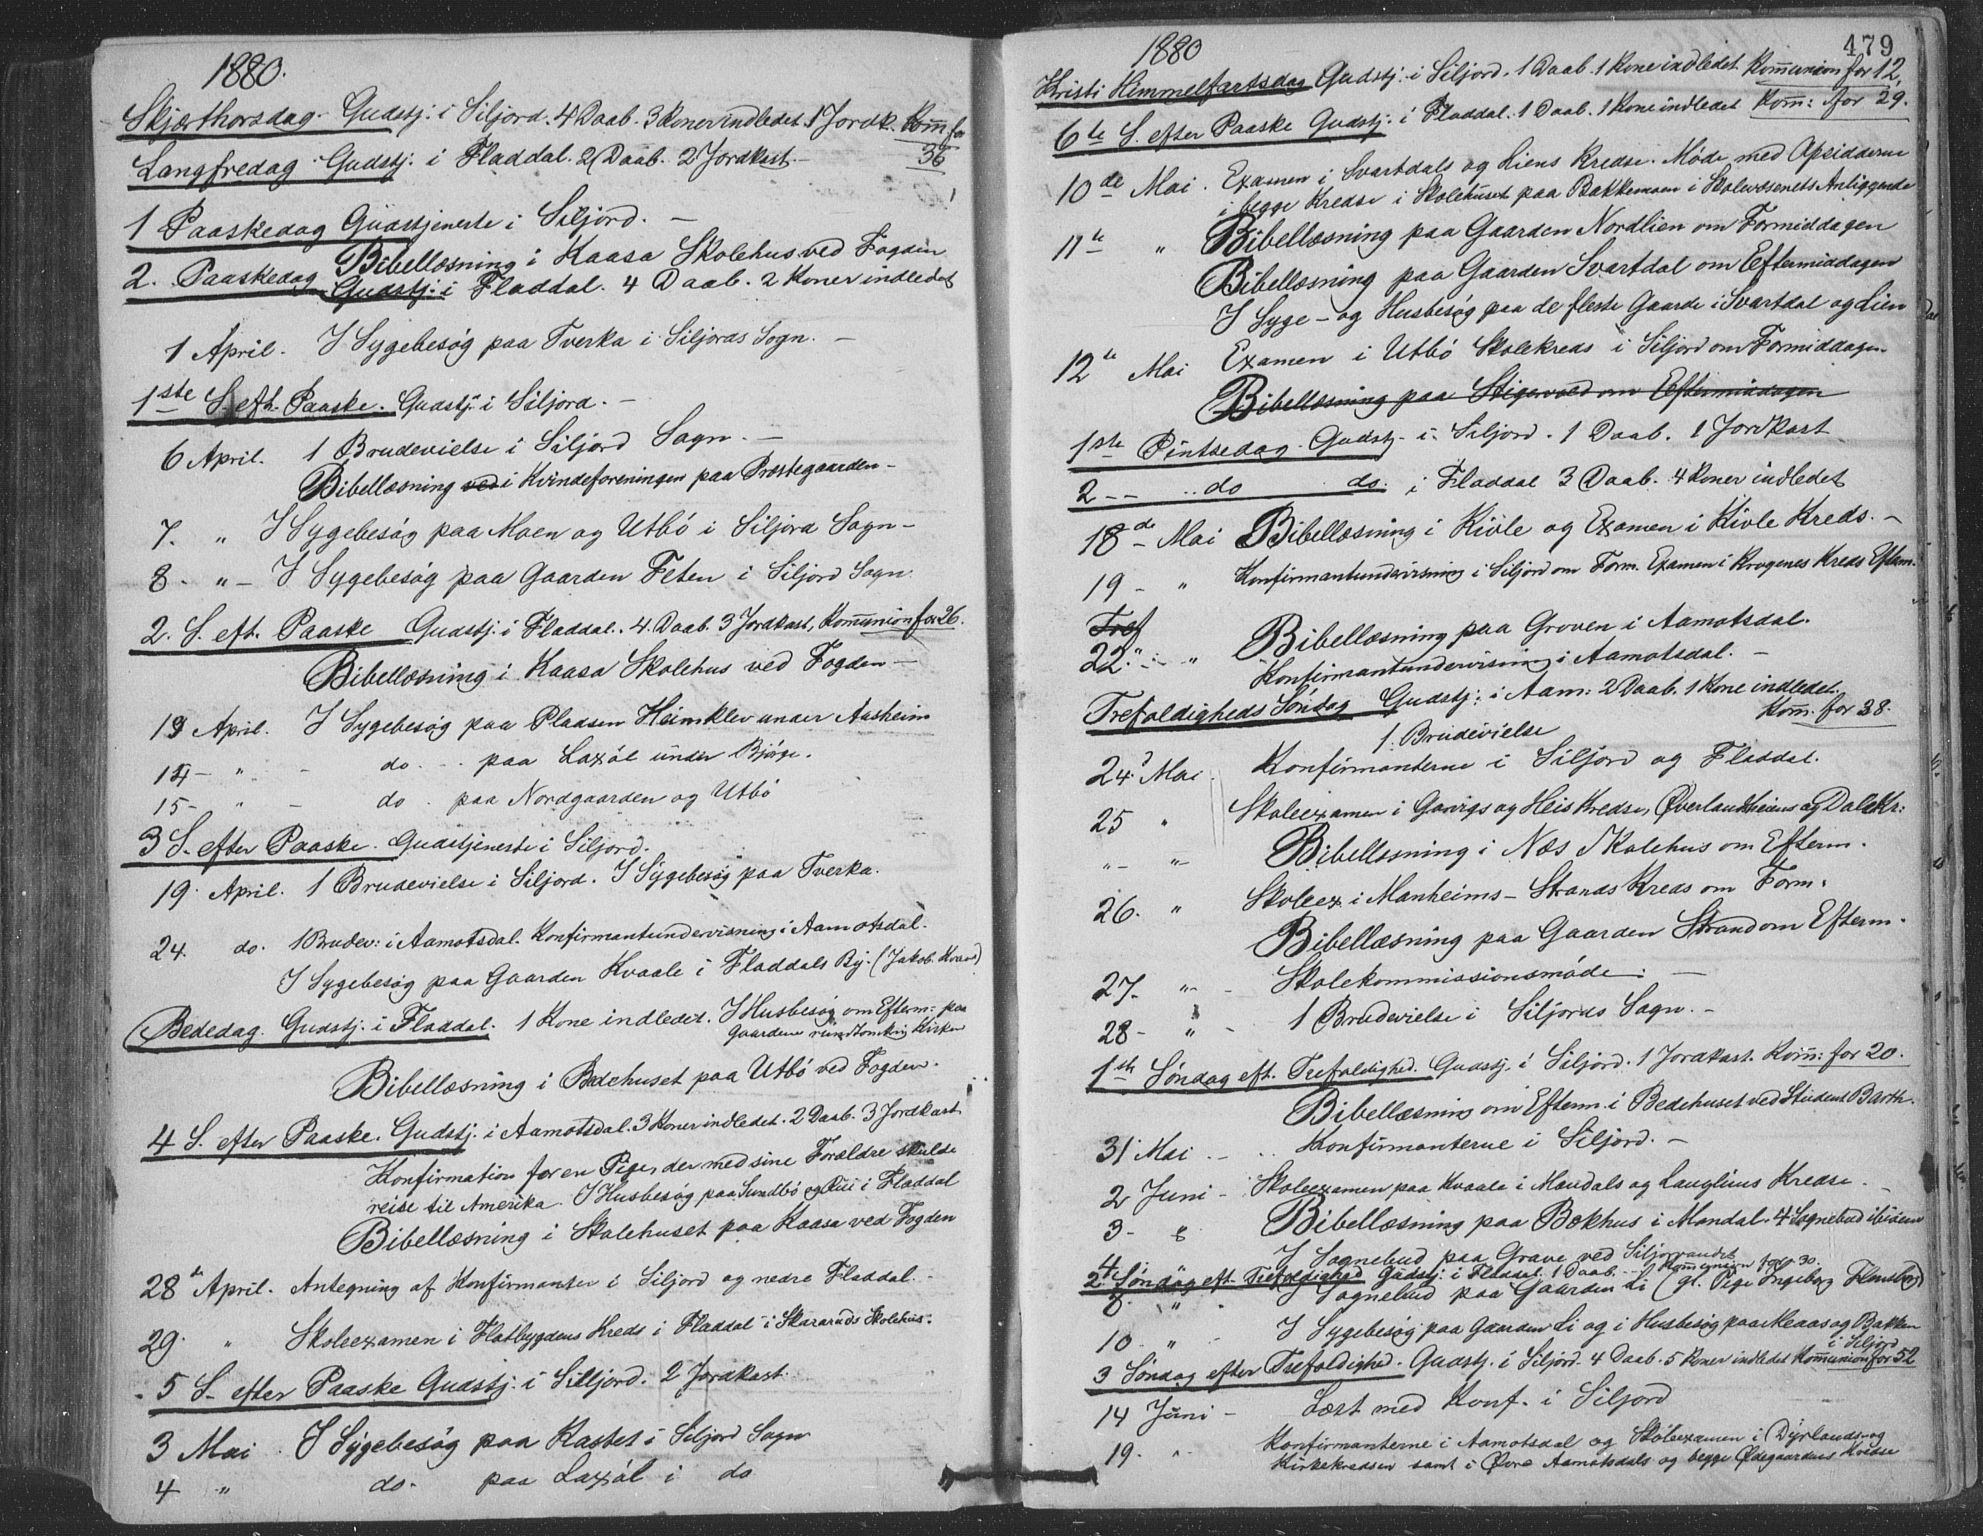 1880.
Skjærthorsdag. Gudstj. i Siljord. 4 Daab. 3 Koner indledet. 1 Jordk. Komm for
36
Langfredag. Gudstj. i Fladdal. 2 Daab. 2 Jordkast.
1 Paaskedag Gudstjeneste i Siljord. —
Bibellæsning i Kaasa Skolehus ved Fogden
2. Paaskedag Gudstj: i Fladdal. 4 Daab. 2 Koner indledet
1 April. I Sygebesög paa Tverka i Siljords Sogn. —
1ste S. eft. Paaske. Gudstj. i Siljord. —
6 April. 1 Brudevielse i Siljord Sogn. —
Bibellæsning ved i Kvindeforeningen paa Præstegaarden —
7. " I Sygebesög paa Moen og Utbö i Siljord Sogn —
8 - " — I Sygebesög paa Gaarden Feten i Siljord Sogn.
2. S. eft. Paaske Gudstj. i Fladdal. 4 Daab. 3 Jordkast, Kommunion for 26.
Bibellæsning i Kaasa Skolehus ved Fogden —
13 April. I Sygebesög paa Pladsen Heimklev under Aasheim
14 — " — do. paa Laxöl under Bjöge.
15 — " — do. paa Nordgaarden og Utbö
3 S. efter Paaske. Gudstjeneste i Siljord.
19. April. 1 Brudevielse i Siljord. I Sygebesög paa Tverka.
24. do. 1 Brudev: i Aamotsdal. Konfirmantundervisning i Aamotsdal.
I Sygebesög paa Gaarden Kvaale i Fladdals By. (Jakob Kvaale)
Bededag. Gudstj. i Fladdal. 1 Kone indledet. I Husbesög om Efterm: paa
Gaardene rundtomkring Kirken
Bibellæsning i Bedehuset paa Utbö ved Fogden.
4 S. efter Paaske. Gudstj. i Aamotsdal. 3 Koner indledet. 2 Daab. 3 Jordkast
Konfirmation for en Pige, der med sine Forældre skulde
reise til Amerika. I Husbesög paa Sundbö og Rui i Fladdal
Bibellæsning i Skolehuset paa Kaasa ved Fogden
28de April. Antegning af Konfirmanter i Siljord og nedre Fladdal. —
29. " Skoleexamen i Flatbygdens Kreds i Fladdal i Skararuds Skolehus.
5 S. efter Paaske Gudstj. i Silljord. 2 Jordkast.
3 Mai. I Sygebesög paa Kastet i Siljord Sogn
4 " do. paa Laxöl i do
1880
479
Kristi Himmelfartsdag Gudstj. i Siljord. 1 Daab. 1 Kone indledet. Kommunion for 12.
6te S. efter Paaske Gudstj. i Fladdal. 1 Daab. 1 Kone indledet Komm: for 29.
10de Mai. Examen i Svartdals og Liens Kredse. Möde med Opsidderne
i begge Kredse i Skolehuset paa Bakkemoen i Skolevæsenets Anliggende
11te " Bibellæsning paa Gaarden Nordlien om Formiddagen
Bibellæsning paa Gaarden Svartdal om Eftermiddagen
I Syge- og Husbesög paa de fleste Gaarde i Svartdal og Lien
12te Mai Examen i Utbö Skolekreds i Siljord om Formiddagen
Bibellæsning paa Stigervold om Eftermiddagen
1ste Pintsedag. Gudstj. i Siljord. 1 Daab. 1 Jordkast
2 — do do. i Fladdal 3 Daab. 4 Koner indledet
18de Mai Bibellæsning i Kivle og Examen i Kivle Kreds. —
19 — " Konfirmantundervisning i Siljord om Form. Examen i Krogenes Kreds Efterm.
Tref
22. " Bibellæsning paa Groven i Aamotsdal.
Konfirmantundervisning i Aamotsdal. —
Trefoldigheds Söndag Gudstj: i Aam: 2 Daab. 1 Kone indledet.
Komm. for 38.
1. Brudevielse
24. Mai. Konfirmanterne i Siljord og Fladdal.
25 " Skoleexamen i Garvigs og Heis Kredse, Øverlandsheiens og Dale Kr:
" — " Bibellæsning i Næs Skolehus om Efterm.
26. " Skoleex. i Manheims- Strands Kreds om Form.
Bibellæsning paa Gaarden Strand om Efterm.
27. " Skolekommissionsmöde. —
28 — " 1 Brudevielse i Siljords Sogn. —
1ste Söndag eft. Trefoldighed. Gudstj. i Siljord. 1 Jordkast. Komm: for 20.
Bibellæsning om Efterm. i Bedehuset ved Student Barth.
31 Mai — Konfirmanterne i Siljord. —
2 Juni — Skoleexamen paa Kvaale i Mandals og Lauglims Kredse. —
3 — Bibellæsning paa Bækhus i Mandal. 4 Sognebud
4. I Sognebud paa Grave ved Siljorvandet
2. Söndag eft. Trefoldighed Gudstj. i Fladdal. 1 Daab. Kommunion for 30.
8. " I Sognebud paa Gaarden Li (gl. Pige Ingeborg
10. " I Sygebesög paa Gaarden Li og i Husbesög paa Kleaas og Bakken
i Siljord
3 Söndag efter Trefoldighed. Gudstj. i Siljord. 4 Daab. 5 Koner indledet Kommunion for 52
14 Juni — Læst med Konf. i Siljord
19. " Konfirmanterne i Aamotsdal og Skoleexamen i Dyrlands- og
Kirkekredsen samt i Øvre Aamotsdals og begge Ødegaardens Kredse